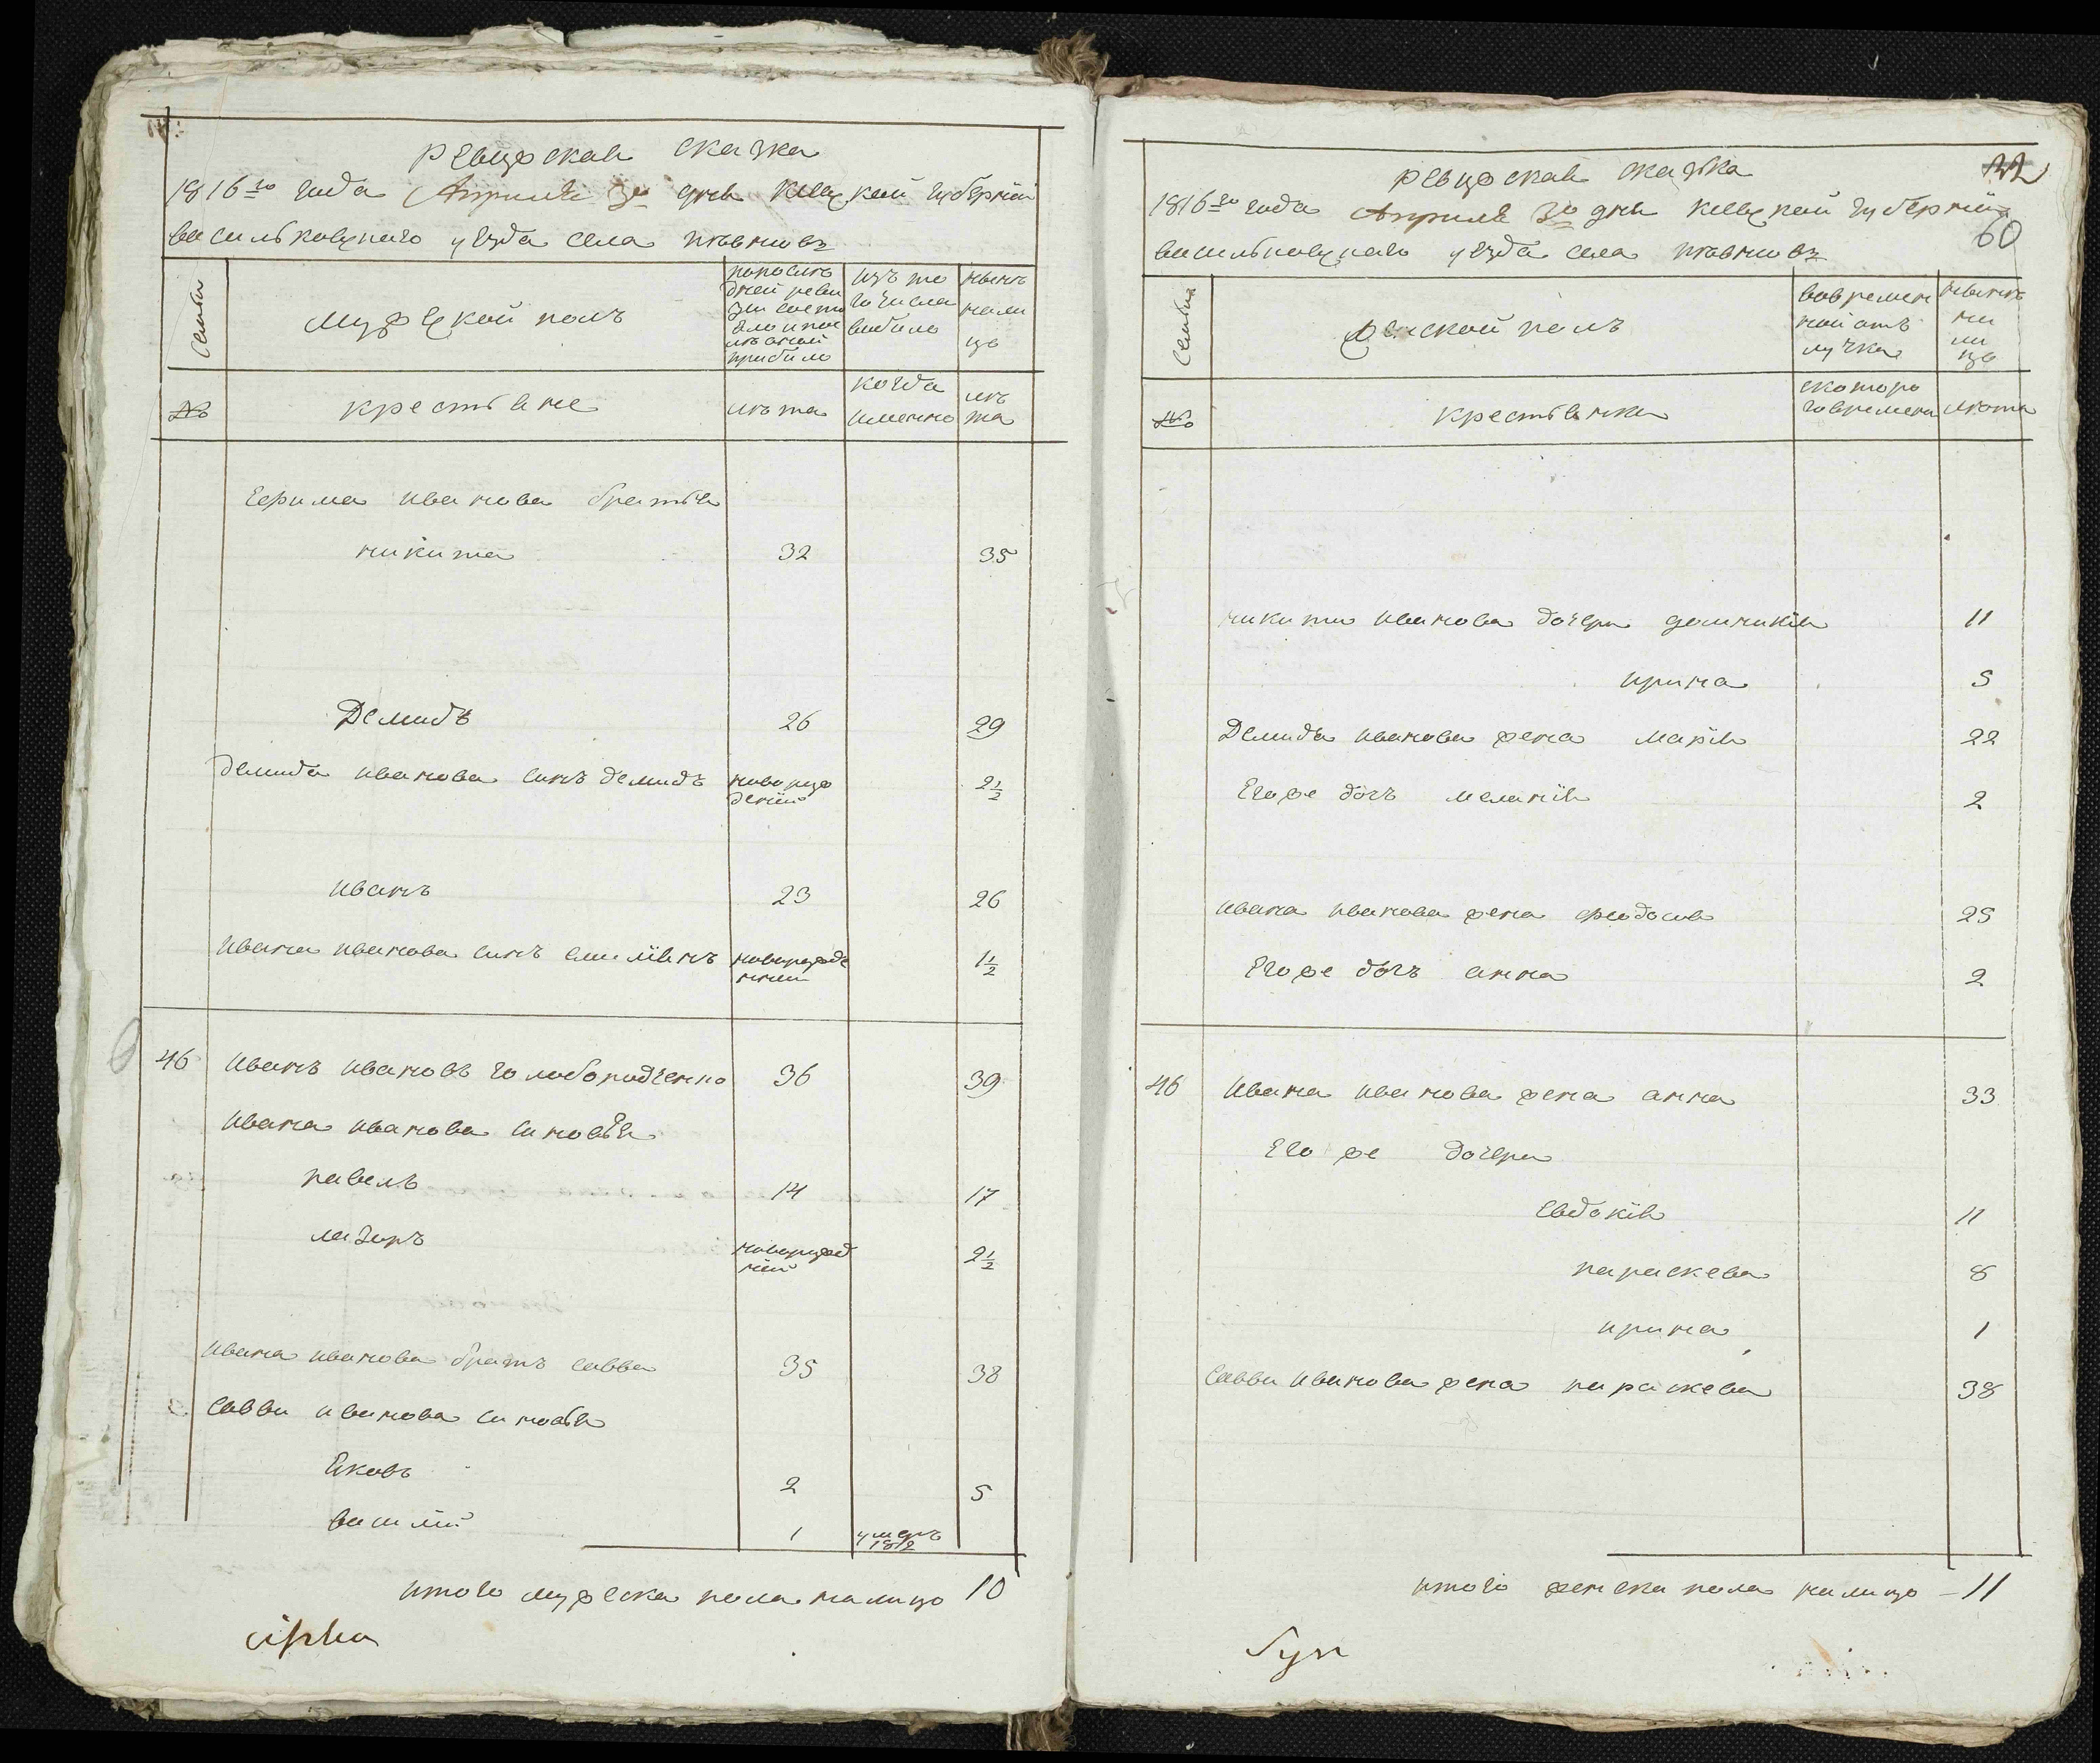 ревижская сказка
1816го года Апреля 30 дня Киевской губернии
васильковскаго уезда села пивновъ
Семьи
Мужеской полъ
попослѣ
дней реви
зии состо
яло и пос
лѣ оной
прибыло
изъ то
го числа
выбыло
нынѣ
нали
цо
№
крестьяне
лѣта
когда
именно
лѣ
та
Ефима иванова братья
никита 32 35
Демидъ 26 29
Демида иванова синъ демидъ новорож
деній 2½
иванъ 23 26
ивана иванова синъ емиліянъ новорожде
нній 1½
46 иванъ ивановъ голобородченко 36 39
ивана иванова синовья
павелъ 14 17
лазаръ новорожд
ній 2½
ивана иванова братъ савва 35 38
Саввы иванова синовья
Яковъ 2 5
василій 1 умеръ
1812
итого мужеска пола налицо 10
cipka
22
ревижская сказка
1816го года Апреля 30 дня Киевской губерніи
60
васильковскаго уезда села пивновъ
Семьи
Женской полъ
вовремен
ной отъ
лучке
нынѣ
на
ли
цо
№
крестьянки
скоторо
говремени
лѣта
никиты иванова дочери домникія 11
ирина 5
Демида иванова жена марія 22
Егоже дочъ меланія 2
ивана иванова жена феодосія 25
Егоже дочъ анна 2
46 ивана иванова жена анна 33
Его же дочери
Евдокія 11
параскева 8
ирина 1
Саввы иванова жена параскева 38
итого женска пола налицо – 11
Syn